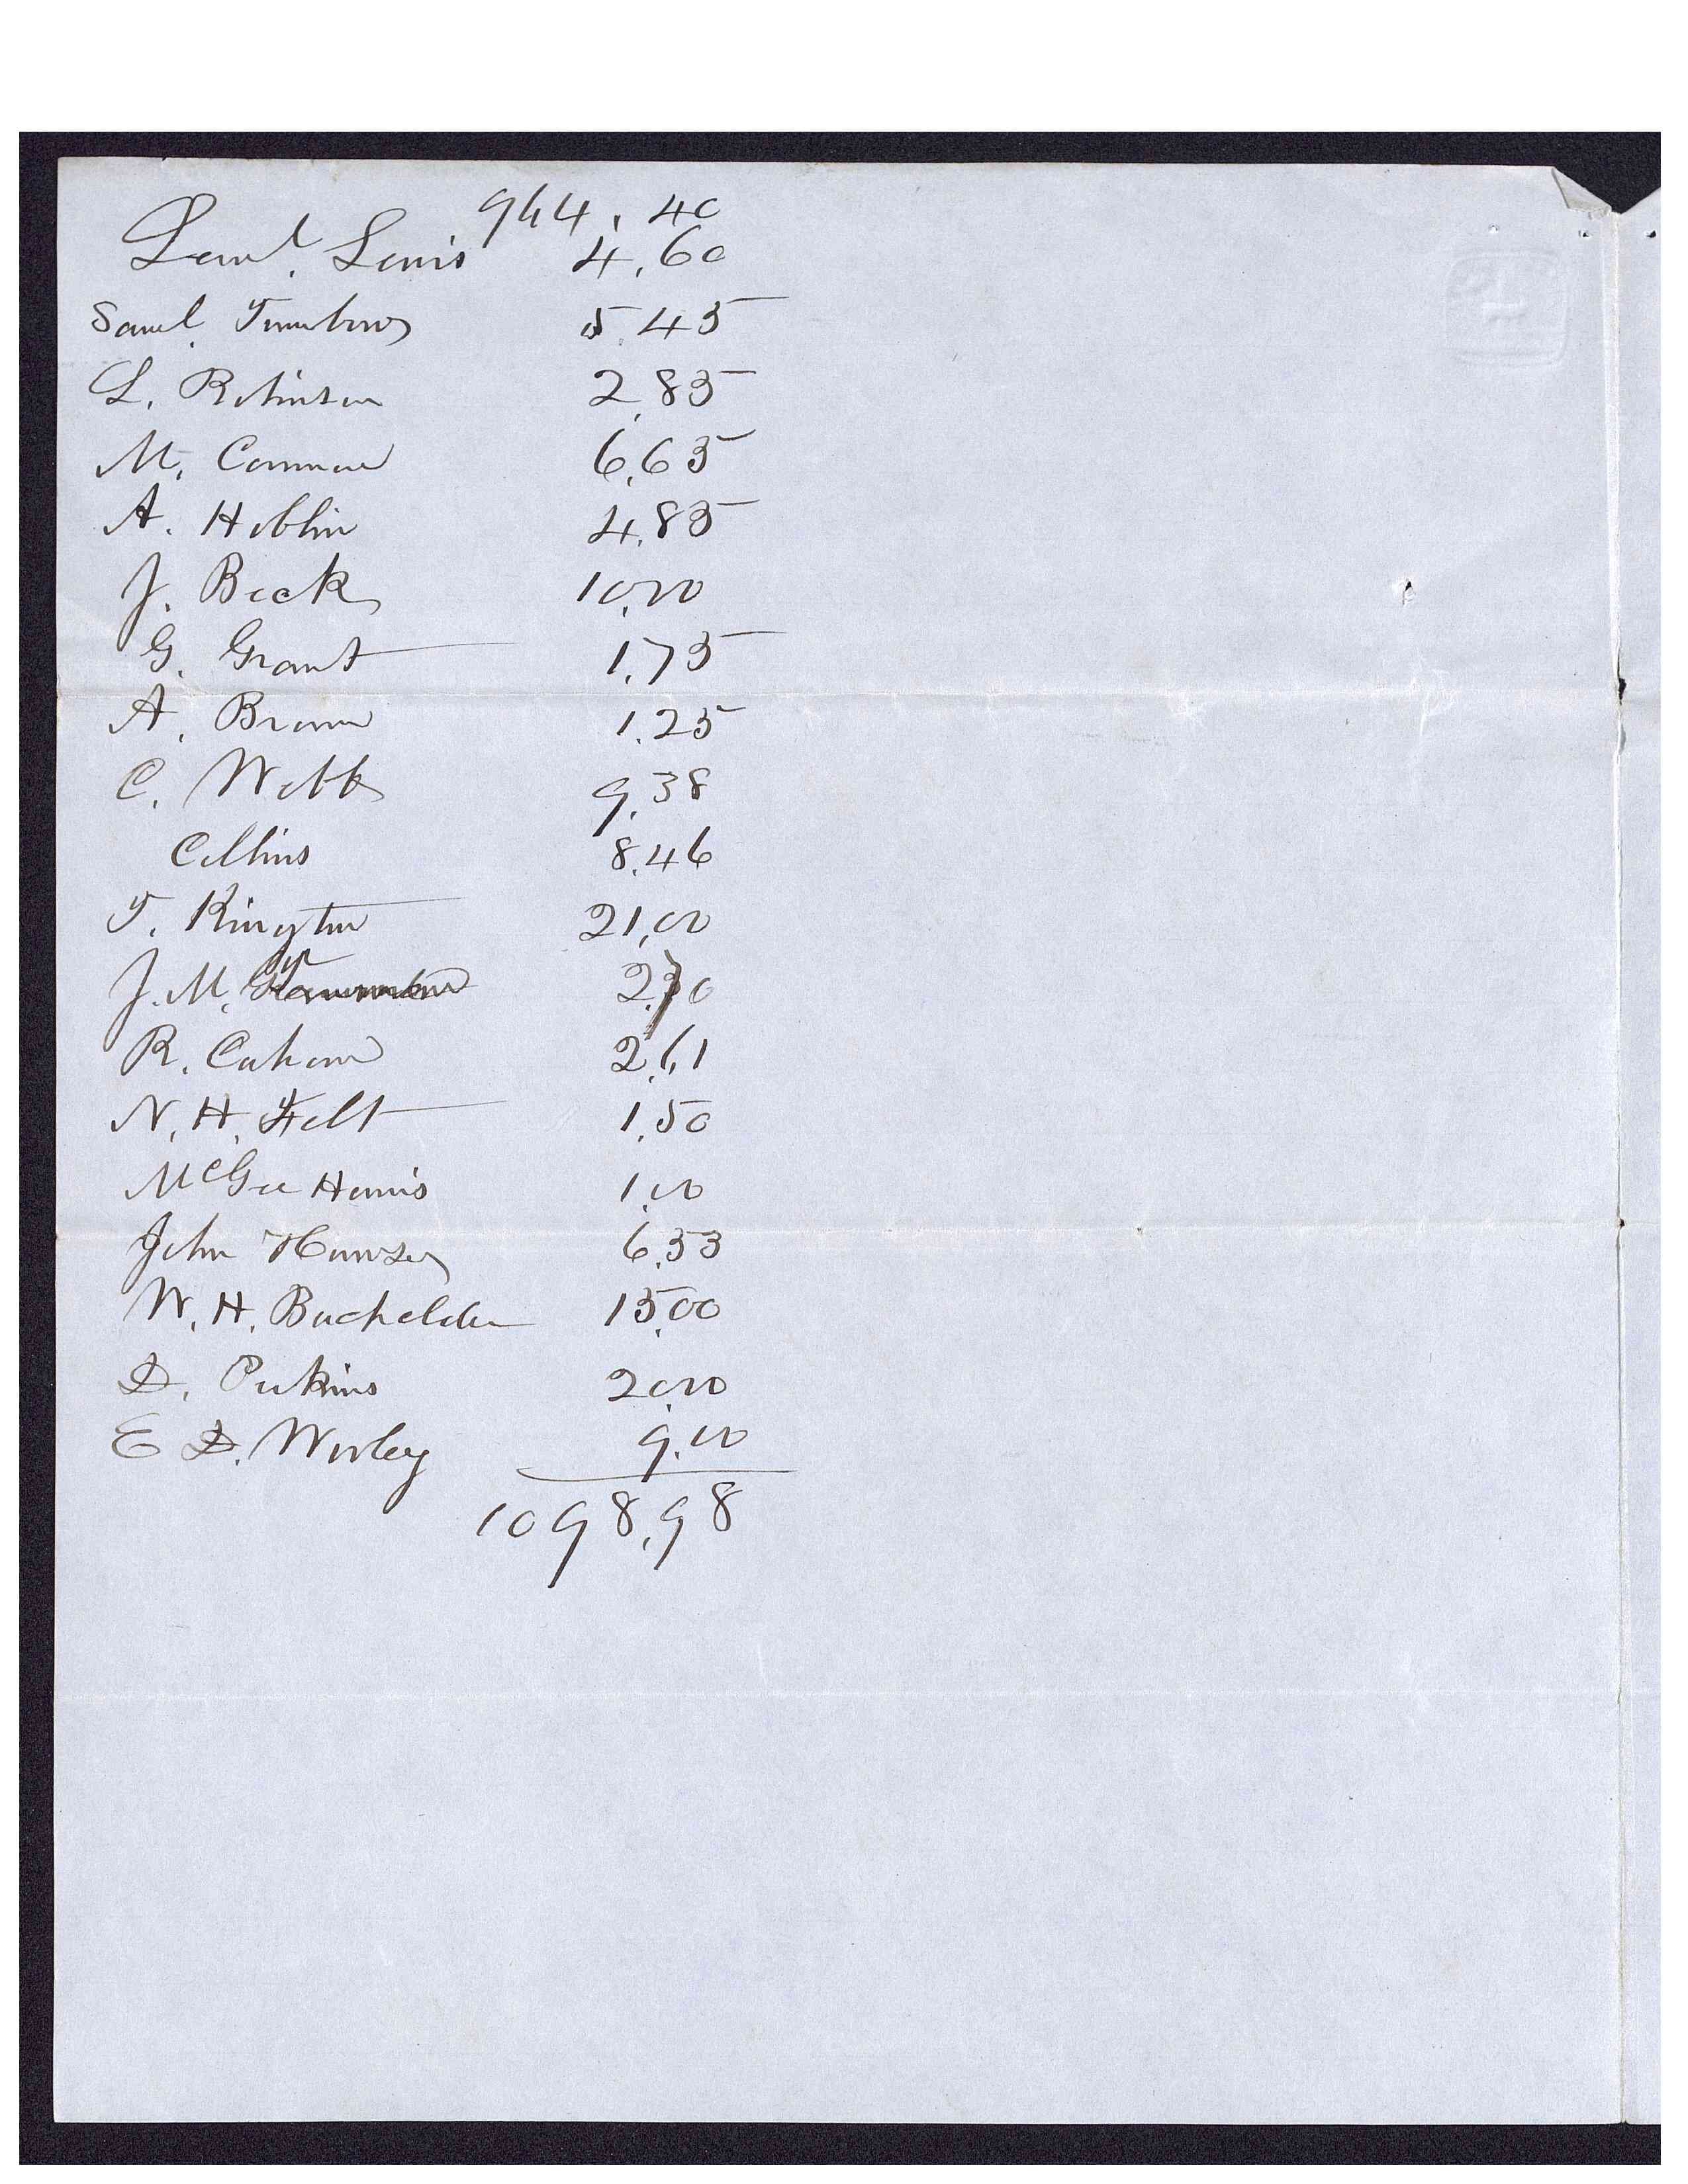 964.40
Leml. Lewis 4.60
Saml. Turnbow 5.45
L. Robinson 2.85
M. Cannon 6.65
A. Hoblin 4.85
J. Beck 10.00
G. Grant 1.75
A. Brown 1.25
C. Webb 9.38
Collins 8.46
T. Kington 21.00
J. M. 2.70
R. Cahoon 2.61
N. H. Felt 1.50
McGee Harris 1.00
John 6.53
W. H. Bachelder 15.00
D. Perkins 20.00
E D. Worley 9.00
1098.98